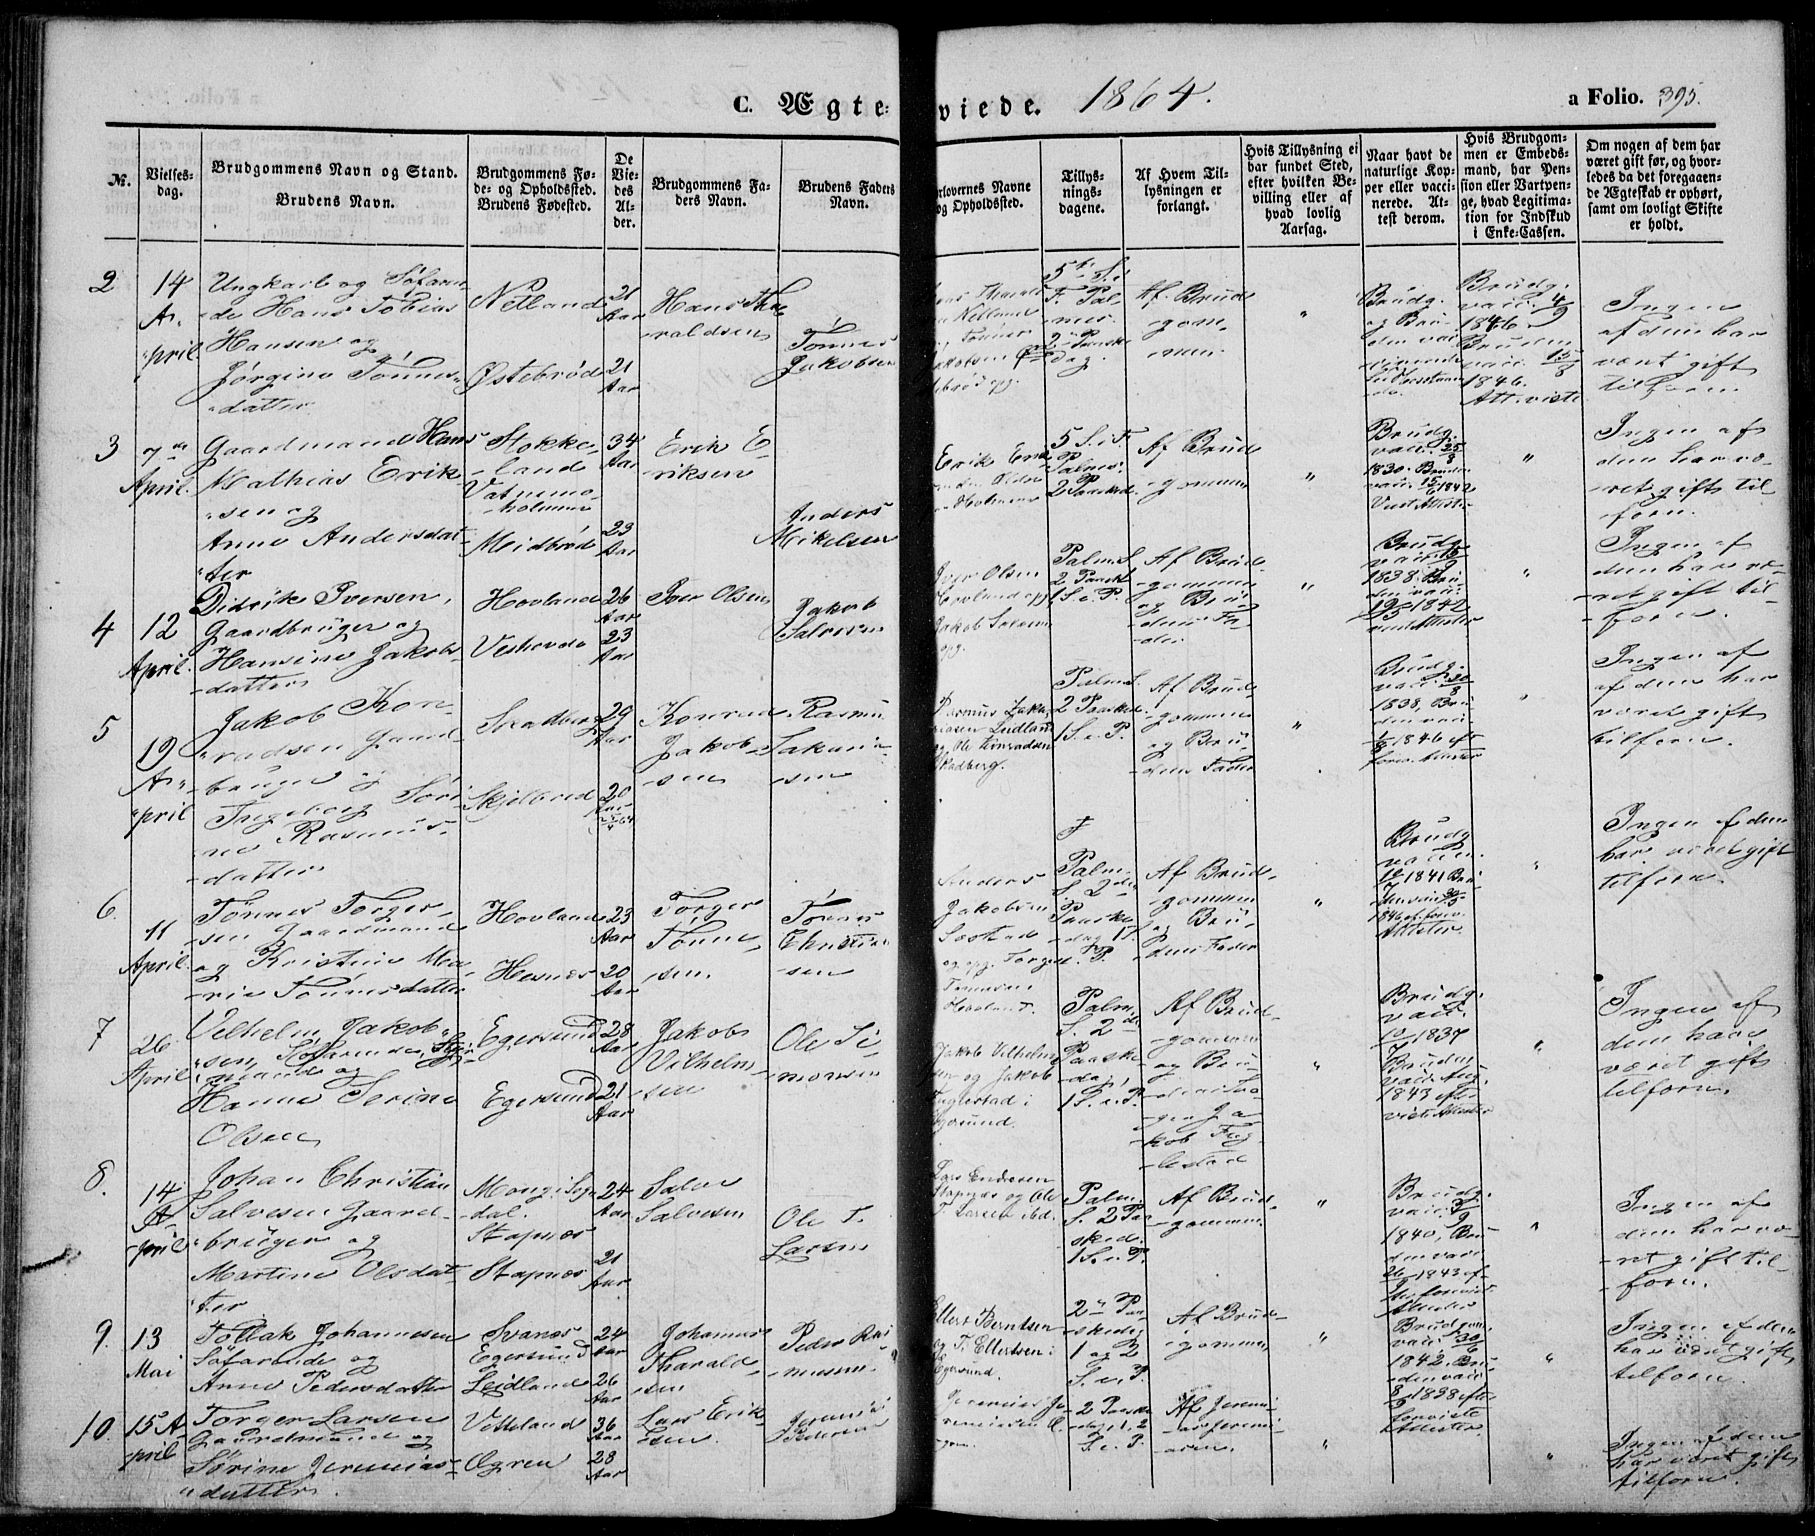 C. Ægteviede. 1864. a Folio. 395.
No.
Vielses-
dag.
Brudgommens Navn og Stand.
Brudens Navn.
Brudgommens Fø-
de- og Opholdssted.
Brudens Fødested.
De
Vie-
des
Al-
der.
Brudgommens Fa-
ders Navn.
Brudens Faders
Navn.
orlovernes Navne
og Opholdssted.
Tillys-
nings-
dagene.
Af Hvem Til-
lysningen er
forlangt.
Hvis Tillysning ei
har fundet Sted,
efter hvilken Be-
villing eller af
hvad lovlig
Aarsag.
Naar havt de
naturlige Kop-
per eller vacci-
nerede. At-
test derom.
Hvis Brudgom-
men er Embeds-
mand, har Pen-
sion eller Vartpen-
ge, hvad Legitima-
tion for Indskud
i Enke-Cassen.
Om nogen af dem har
været gift før, og hvor-
ledes da det foregaaen-
de Ægteskab er ophørt,
samt om lovligt Skifte
er holdt.
2
14
A-
pril
Ungkarl og Søfaren-
de Hans Tobias
Hansen og
Jørgine Tønnes-
datter
Netland
Østebrød
21
Aar
21
Aar
Hans Tha-
raldsen
Tønnes
Jakobsen
5te S. i
F. Pal-
mes.
2 Paaske
dag.
Af Brud-
gom-
men
Brudg.
og Bru-
den vac-
Brudg.
vacc. 4/9
1846.
Bruden
vacc. 15/8
1846.
Att. viste
Ingen
af dem har
vært gift
tilforn.
3
7de
April.
Gaardmand Hans
Mathias Erik-
sen og
Anne Andersdat-
ter
Stokke-
land
Vatnemo-
holmene
Meidbrød
34
Aar
23
Aar
Erik E-
riksen
Anders
Mikelsen
5 S. i F.
Palmes.
2 Paasked.
Af Brud-
gommen
Brudg.
vacc. 25/8
1830. Bruden
vacc. 15/6 1842
Ingen af
dem har væ-
ret gift til-
forn.
4
12
April.
Didrik Iversen,
Gaardbruger og
Hansine Jakobs-
datter
Hovland
Veshovde
26
Aar
23
Aar
Iver Olsen
Jakob
Salvesen
Iver Olsen
Hovland og
Jakob Salvesen
Palm S.
2 Paaskd.
1 S. e. P.
Af Brud-
gommen
og Bru-
dens Fa-
der
Brudg.
1838. Bru-
den vacc.
1842
Ingen af
dem har væ-
ret gift til-
forn.
5
19
A-
pril
Jakob Kon-
radsen Gaard-
bruger og
Ingeborg Seri-
ne Rasmus-
datter
Skadberg
Skjelbred
29
Aar
20
Aar
Konrad
Jakob-
sen
Rasmus
Sakaria-
sen
Rasmus Zaka-
riasen Leidland
og Ole Konradsen
Skadberg.
Palm S.
2 Paasked.
1 S. e. P.
Af Brud-
gommen
og Bru-
dens Fader
Brudg.
vacc. 30/8
1838, Bru-
den vacc.
1846 eft.
forev. Attester
Ingen af
af dem har
været gift
tilforn.
6.
11
April.
Tønnes Torger-
sen Gaardmand
og Kristine Ma-
rie Tønnesdatter
Hovland
Hesnæs
23
Aar
20
Aar
Torger
Tønne-
sen.
Tønnes
Christian-
sen
Anders
Jakobsen
og Torger
Tønnesen
Hovland.
Palm.
S. 2den
Paaske-
dag 1 S.
P.
Af Brud-
gommen
og Bru-
dens Fader
Brudg.
vacc.
1841 Bru-
1846 ef. forev.
Attester.
Ingen af dem
har været gift
tilforn.
7
26
April
Vilhelm Jakob-
sen, Søfarende, Styr-
mand og
Hanne Serine
Olsen
Egersund
Egersund
28
Aar
21
Aar
Jakob
Vilhelm-
sen
Ole Si-
monsen
Jakob Vilhelm-
sen og Jakob
Fuglestad i
Egersund.
Palm.
S. 2den
Paaske-
dag,
1 S. e. P.
Af Brud-
gommen
og Bru-
dens
Ja-
kob Fug-
lestad
Brudg.
vacc.
1837
Bruden
vacc. Aug.
1843 efter
viste Attester
Ingen af
dem have
været gift
tilforn.
8.
14
A-
pril
Johan Christian
Salvesen Gaard-
bruger og
Martine Olsdat-
ter
Mong i Sogn-
dal.
Stapnæs
Stapnæs
24
Aar
21
Aar
Salve
Salvesen
Ole T.
Larsen
Lars Endresen
Stapnæs og Ole
T. Larsen ibd.
Palm.
S. 2 Paa-
sked.
1 S. e. P.
Af Brud-
gommen
Brudg.
vacc.
1840, Bru-
den vacc.
26 1843 ef-
ter foreviste
Attester
Ingen af
dem har væ-
ret gift til-
forn.
9.
13
Mai
Tollak Johannesen
Søfarende og
Anne Pedersdatter
Svanæs
Egersund
Leidland
24
Aar
26
Aar
Johannes
Tharald-
sen
Peder Ras-
mussen
Ellert Berntsen
og T. Ellertsen i
Egersund.
2den Paa-
skedag
1 og 2
S. e. P.
Af Brud-
gommen
Brudgom.
vacc. 30/6
1842. Bru-
den vacc.
1838 efter
foreviste
Attester
Ingen af dem
har været gift
tilforn.
10.
15 A-
pril
Torger Larsen
Gaardmand og
Sørine Jeremias-
datter.
Vetteland
Øgren
36
Aar
28
Aar
Lars Erik-
sen
Jeremias
Pedersen
Jeremias Je-
remiasen Ø-
gren.
2 Paaske-
dag, 1. 2
S. e. P.
Af Jeremi-
as Jeremi-
asen.
Ingen af dem
har været gift
tilforn.